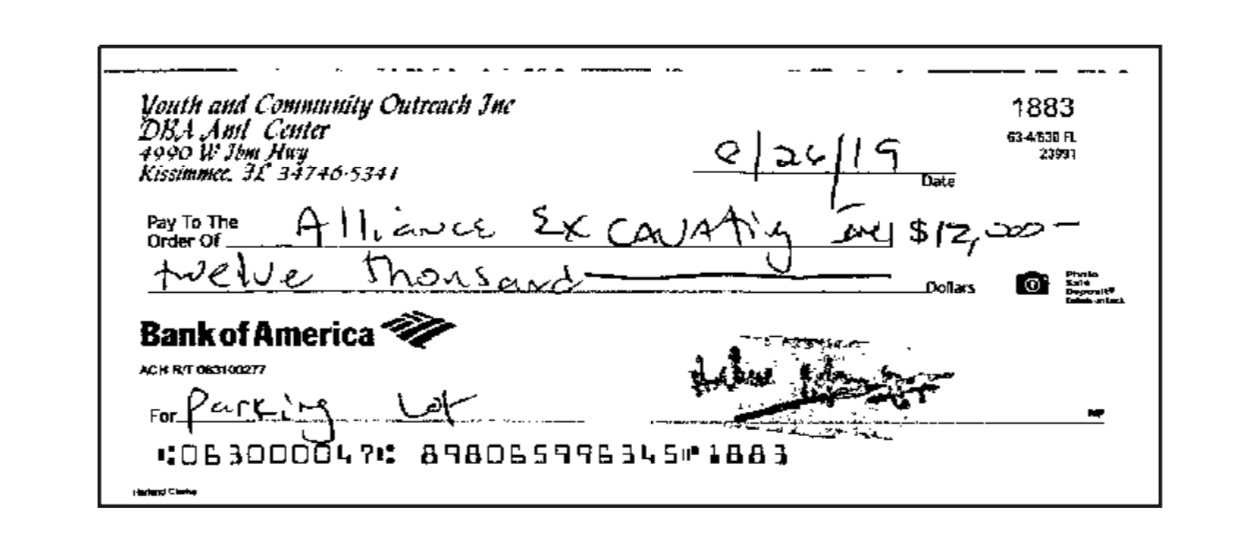 Youth and Community Outreach Inc
DBA Aml Center
4990 W Ibm Hwy
Kissimmee, FL 34746-5341
1883
63-4/630 FL
23991
/26/19
Date
Pay To The
Order Of Alliance Excavating $12,000-
twelve thousand Dollars
Photo
Safe
Deposit®
Bank of America
ACH R/T 063100277
For Parking Lot
MP
⑆063000047⑆ 898065996345⑈1883
Harland Clarke